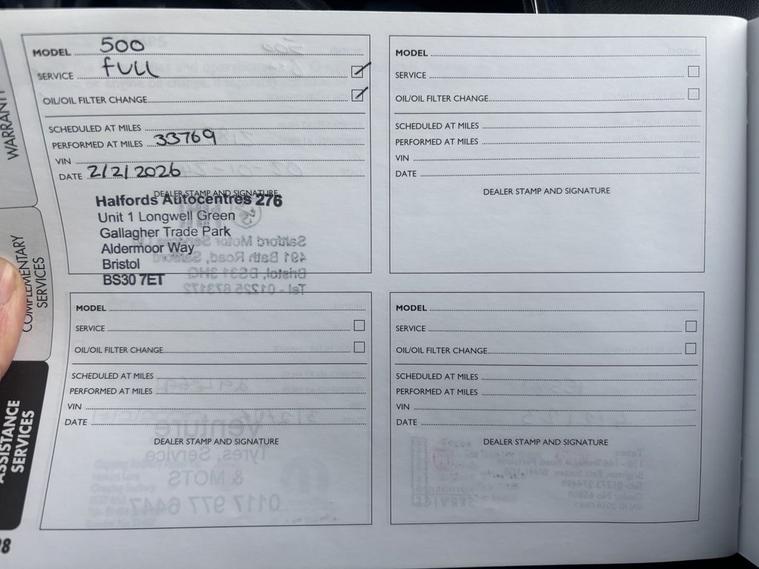 WARRANTY
COMPLEMENTARY
SERVICES
ASSISTANCE
SERVICES
MODEL 500
SERVICE FULL
OIL/OIL FILTER CHANGE
SCHEDULED AT MILES
PERFORMED AT MILES 33769
VIN
DATE 2/2/2026
DEALER STAMP AND SIGNATURE
Halfords Autocentres 276
Unit 1 Longwell Green
Gallagher Trade Park
Aldermoor Way
Bristol
BS30 7ET
MODEL
SERVICE
OIL/OIL FILTER CHANGE
SCHEDULED AT MILES
PERFORMED AT MILES
VIN
DATE
DEALER STAMP AND SIGNATURE
MODEL
SERVICE
OIL/OIL FILTER CHANGE
SCHEDULED AT MILES
PERFORMED AT MILES
VIN
DATE
DEALER STAMP AND SIGNATURE
MODEL
SERVICE
OIL/OIL FILTER CHANGE
SCHEDULED AT MILES
PERFORMED AT MILES
VIN
DATE
DEALER STAMP AND SIGNATURE